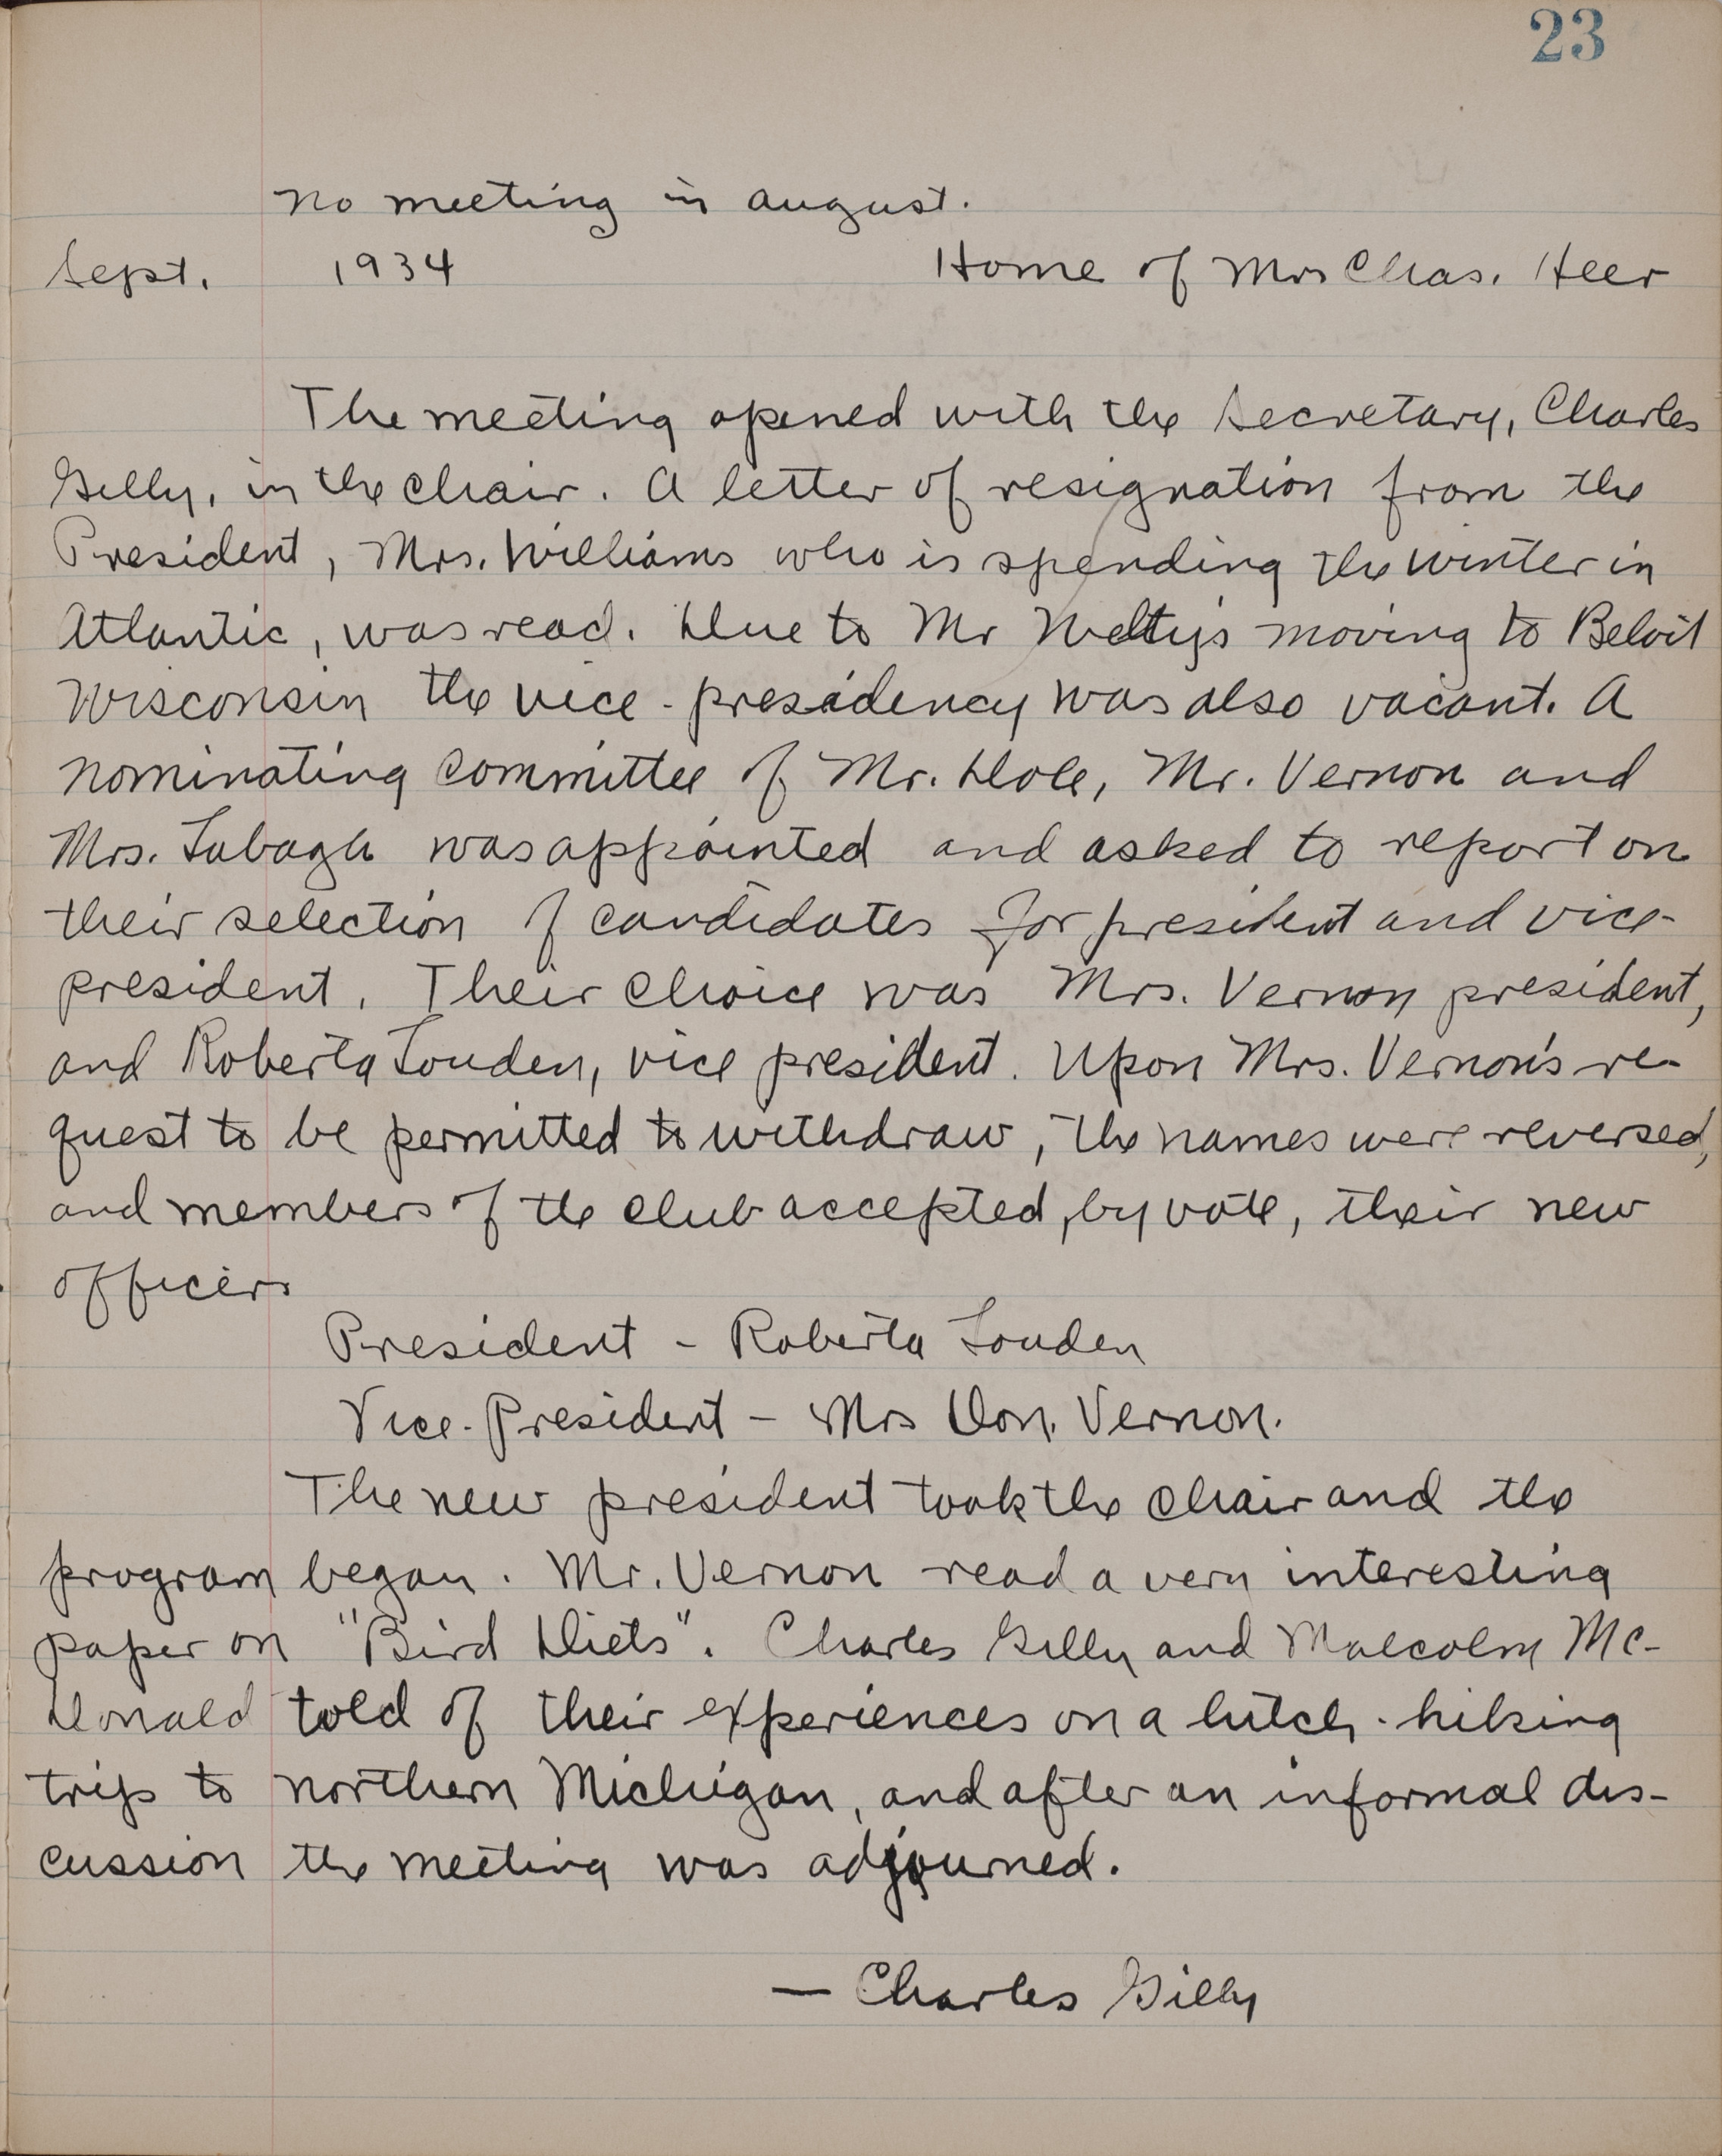 23
No meeting in August.
Sept. 1934 Home of Mrs Chas. Heer
The meeting opened with the Secretary, Charles
Gilly, in the chair. A letter of resignation from the
President, Mrs. Williams who is spending the winter in
Atlantic, was read. Due to Mr Welty's moving to Beloit
Wisconsin the vice-presidency was also vacant. A
nominating committee of Mr. Dole, Mr. Vernon and
Mrs. Labagh was appointed and asked to report on
their selection of candidates for president and vice-
president. Their choice was Mrs. Vernon president,
and Roberta Louden, vice president. Upon Mrs. Vernon's re-
quest to be permitted to withdraw, the names were reversed,
and members of the club accepted, by vote, their new
officers
President - Roberta Louden
Vice-President - Mrs Don. Vernon.
The new president took the chair and the
program began. Mr. Vernon read a very interesting
paper on "Bird Diets". Charles Gilly and Malcolm Mc-
Donald told of their experiences on a hitch-hiking
trip to northern Michigan, and after an informal dis-
cussion the meeting was adjourned.
— Charles Gilly